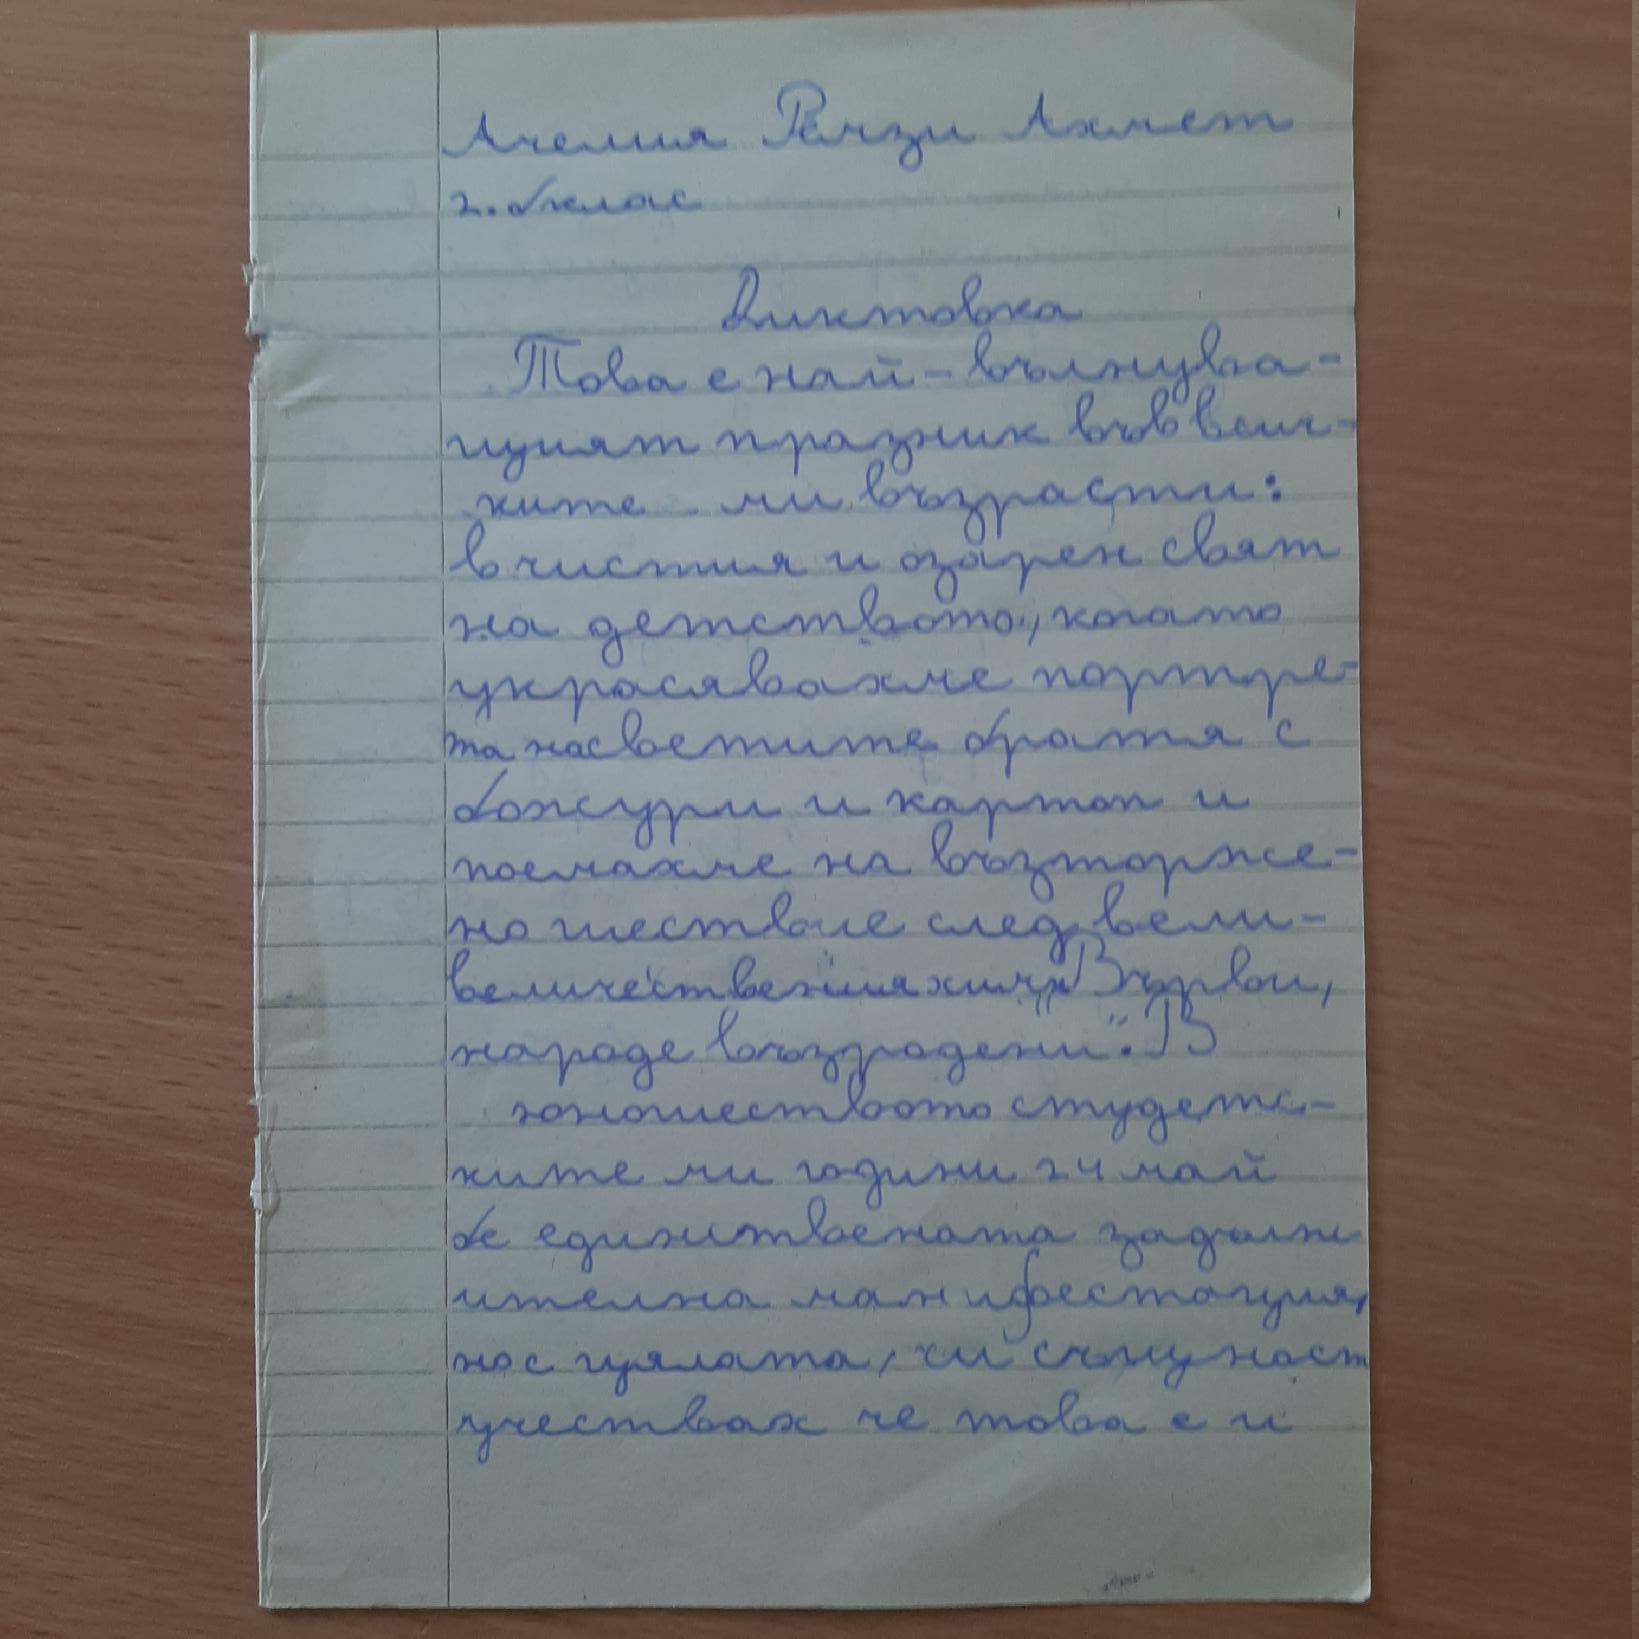 Ачелия Ремзи Ахмет
2. б клас
Диктовка
Това е най-вълнува-
щият празник във всич-
ките ми възрасти:
в чистия и озарен свят
на детството, когато
украсявахме портре-
та на светите братя с
божури и картон и
поемахме на възторже-
но шествие след вели-
величествения химн „Върви,
народе възродени". В
юношеството студетс-
ките ми години 24 май
бе единствената задълж
ителна манифестация,
но с цялата, си същуност
учествах че това е и